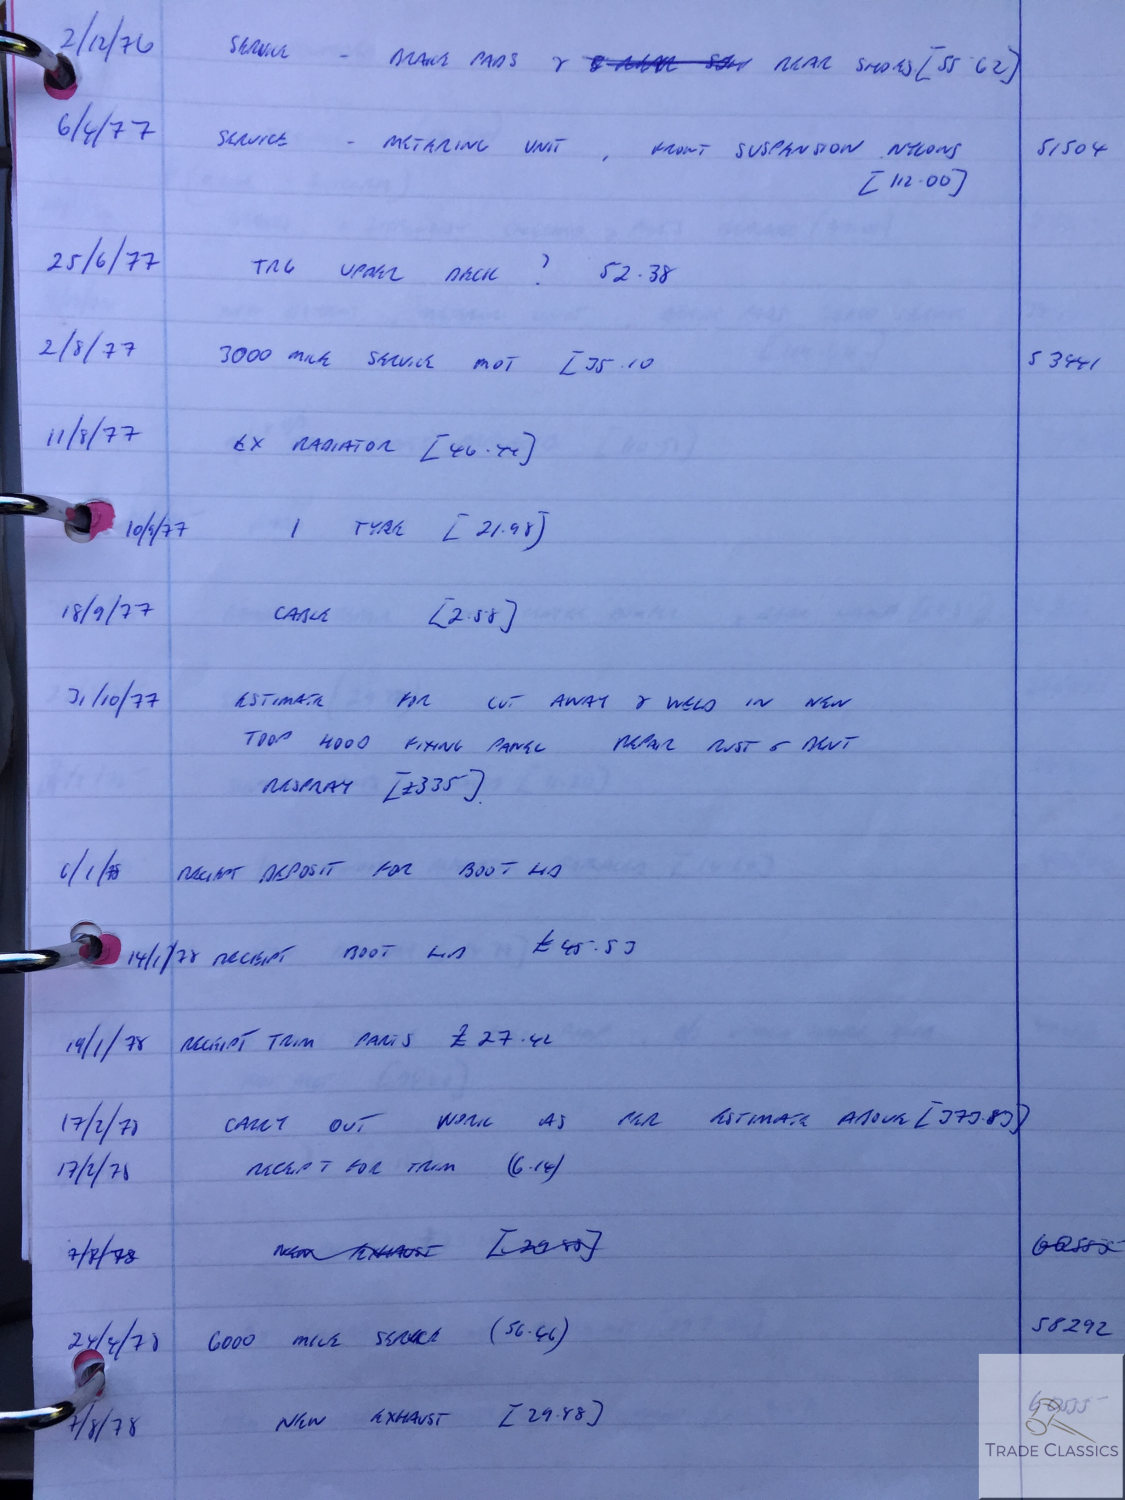 2/12/76 SERVICE - BRAKE PADS & REAR SHOES [55.62]
6/4/77 SERVICE - METERING UNIT, FRONT SUSPENSION NYLONS 51504
[112.00]
25/6/77 UPPER ? 52.38
2/8/77 3000 MILE SERVICE MOT [35.10 53441
11/8/77 EX RADIATOR [46.44]
10/9/77 1 TYRE [21.98]
18/9/77 CABLE [2.58]
31/10/77 ESTIMATE FOR CUT AWAY & WELD IN NEW
HOOD FIXING PANEL REPAIR RUST & DENT
RESPRAY [£335]
6/1/78 RECEIPT DEPOSIT FOR BOOT LID
14/1/78 RECEIPT BOOT LID £45.53
19/1/78 RECEIPT TRIM PARTS £27.42
17/2/78 CARRY OUT WORK AS PER ESTIMATE ABOVE [373.83]
17/2/78 RECEIPT FOR TRIM (6.14)
7/8/78 NEW EXHAUST [29.88]
24/4/78 6000 MILE SERVICE (56.46) 58292
7/8/78 NEW EXHAUST [29.88]
TRADE CLASSICS